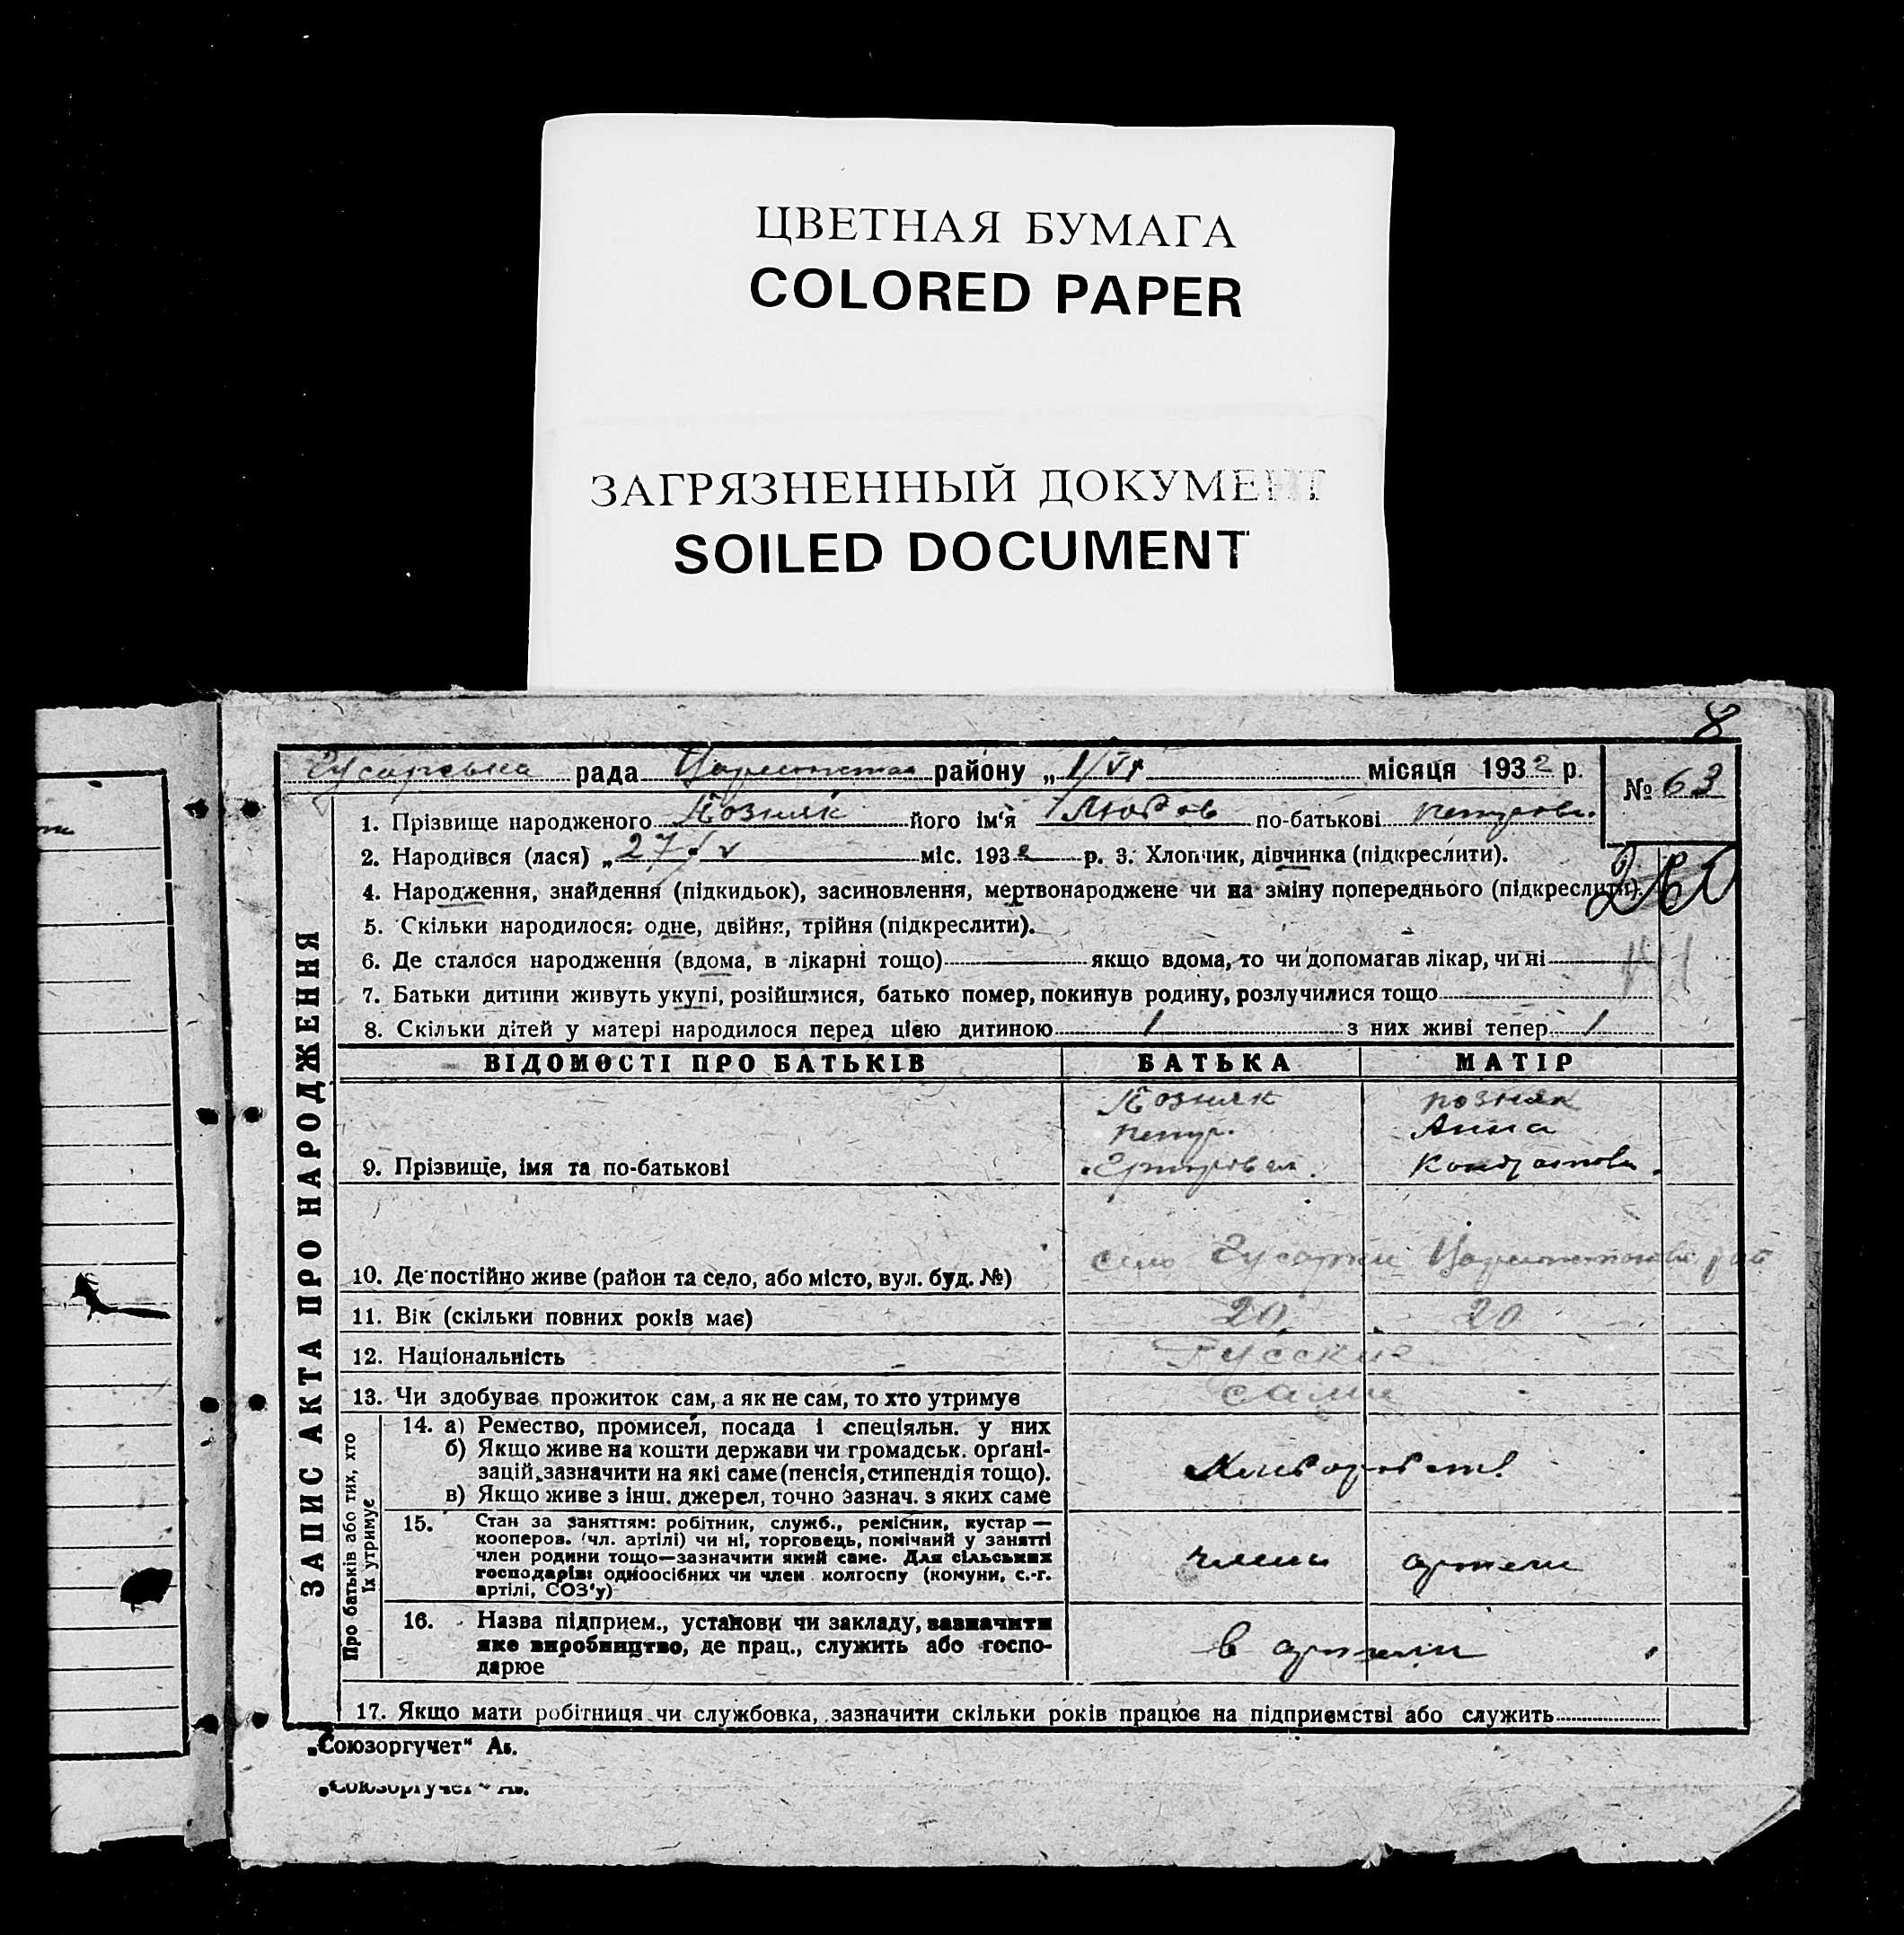 ЦВЕТНАЯ БУМАГА
COLORED PAPER
ЗАГРЯЗНЕННЫЙ ДОКУМЕНТ
SOILED DOCUMENT
8
Гусарська рада району „ 1/VI місяця 1932 р.
№ 63
1. Прізвище народженого Позняк його ім'я Любов по-батькові петровн.
2. Народився (лася) „ 27/V міс. 1932 р. 3. Хлопчик, дівчинка (підкреслити).
4. Народження, знайдення (підкидьок), засиновлення, мертвонароджене чи на зміну попереднього (підкреслити).
5. Скільки народилося: одне, двійня, трійня (підкреслити).
6. Де сталося народження (вдома, в лікарні тощо) якщо вдома, то чи допомагав лікар, чи ні
7. Батьки дитини живуть укупі, розійшлися, батько помер, покинув родину, розлучилися тощо
8. Скільки дітей у матері народилося перед цією дитиною 1 з них живі тепер 1
ЗАПИС АКТА ПРО НАРОДЖЕННЯ
ВІДОМОСТІ ПРО БАТЬКІВ БАТЬКА МАТІР
Позняк позняк
петр. Анна
9. Прізвище, імя та по-батькові
село Гусарки
10. Де постійно живе (район та село, або місто, вул. буд. №)
11. Вік (скільки повних років має) 20 20
12. Національність Русские
13. Чи здобуває прожиток сам, а як не сам, то хто утримує сами
Про батьків або тих, хто їх утримує
14. а) Ремество, промисел, посада і спеціяльн. у них
б) Якщо живе на кошти держави чи громадськ. орґані-
зацій, зазначити на які саме (пенсія, стипендія тощо).
в) Якщо живе з інш. джерел, точно зазнач. з яких саме
15. Стан за заняттям: робітник, служб., ремісник, кустар —
кооперов. (чл. артілі) чи ні, торговець, помічний у занятті
член родини тощо—зазначити який саме. Для сільських
господарів: одноосібних чи член колгоспу (комуни, с.-г.
артілі, СОЗ'у)
члены артели
16. Назва підприєм., установи чи закладу, зазначити
яке виробництво, де прац., служить або госпо-
дарює
в артели
17. Якщо мати робітниця чи службовка, зазначити скільки років працює на підприємстві або служить
„Союзоргучет“ Аı.
„Союзоргучет“ Аı.